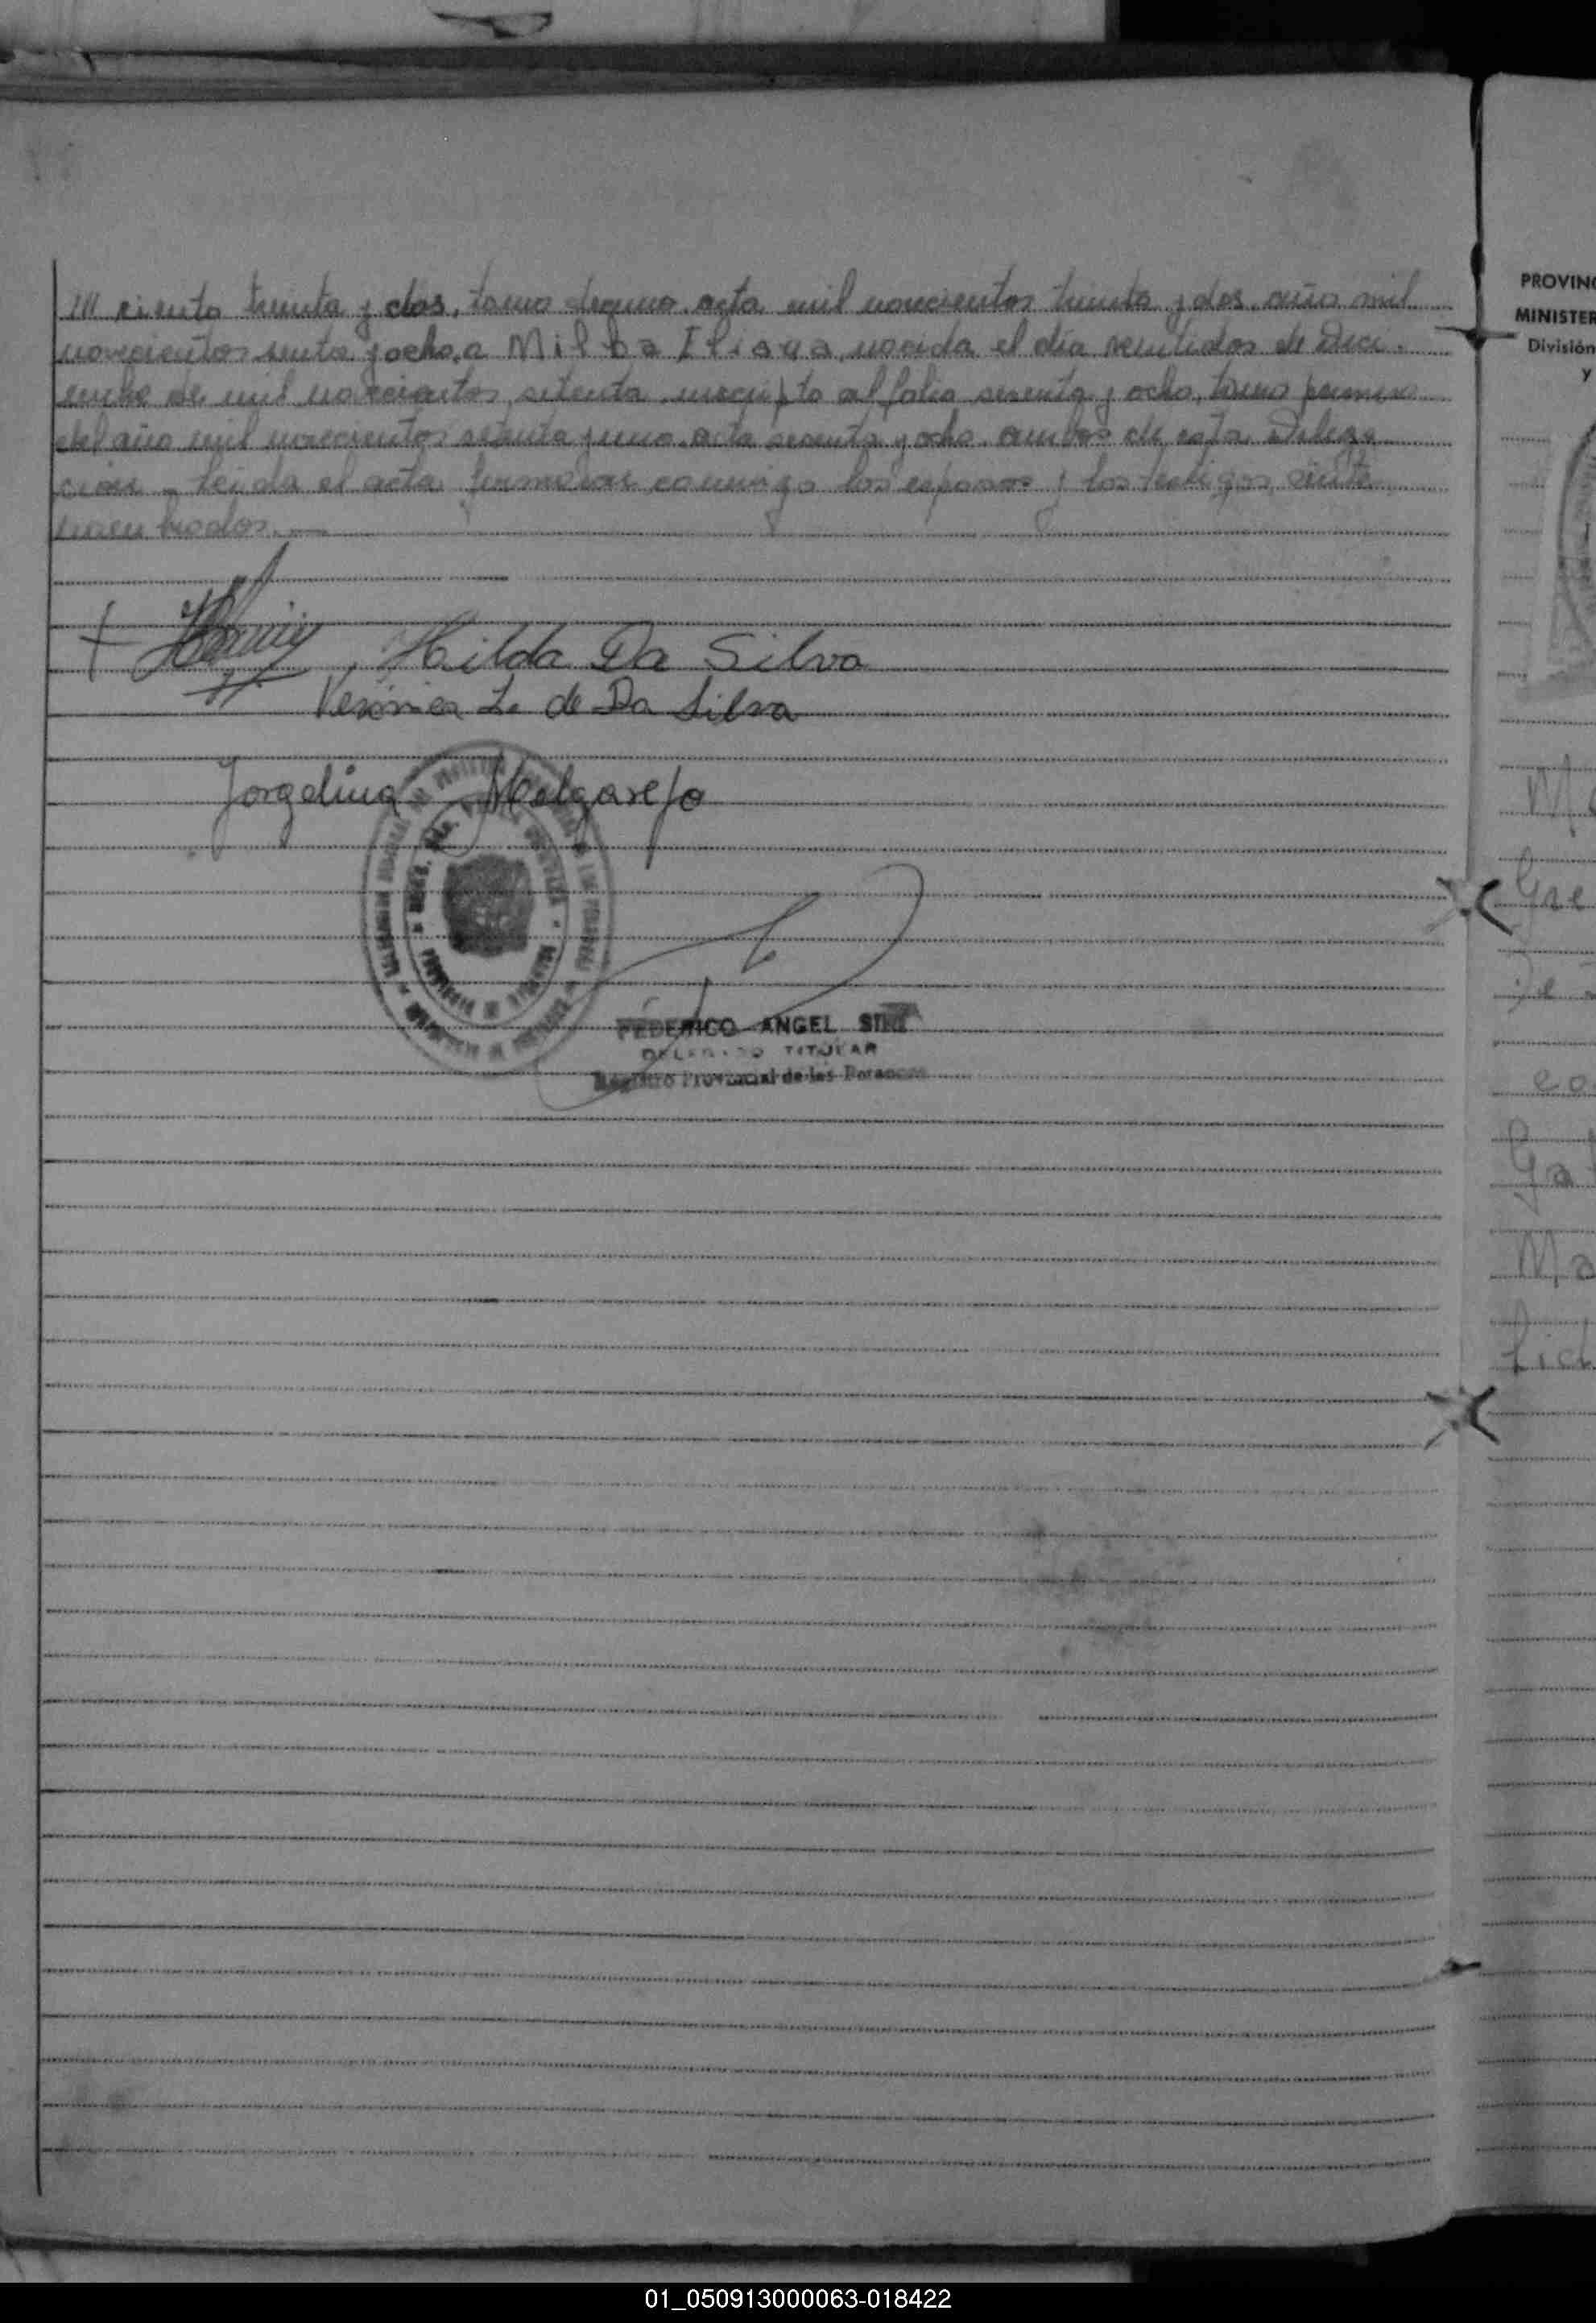 /// ciento treinta y dos, tomo decimo, acta mil novecientos treinta y dos, año mil
novecientos senta y ocho, a Milba Iliana, nacida el día veintidos de Dici-
embre de mil novecientos setenta, inscripto al folio sesenta y ocho, tomo primero
del año mil novecientos setenta y uno, acta sesenta y ocho, ambos de esta Delega
cion - Leida el acta firmaron conmigo los esposos y los testigos ante
nombrados.-
Hilda Da Silva
Verónica L. de Da Silva
Jorgelina Melgarejo
FEDERICO ANGEL
DELEGADO TITULAR
Registro Provincial de las Personas
PROVINC
MINISTER
División
y
M
Gre
co
Ga
Ma
Lid
01_050913000063-018422